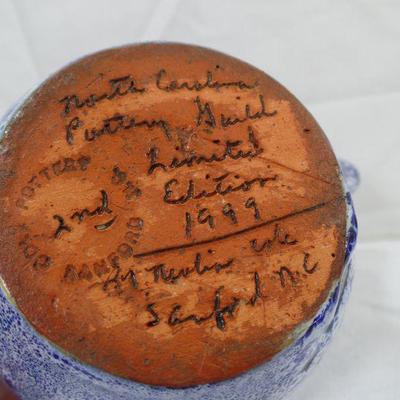 North Carolina
Pottery Guild
Limited
2nd Edition
1999
Nevlin Cole
Sanford N.C
COLE POTTERY
SANFORD